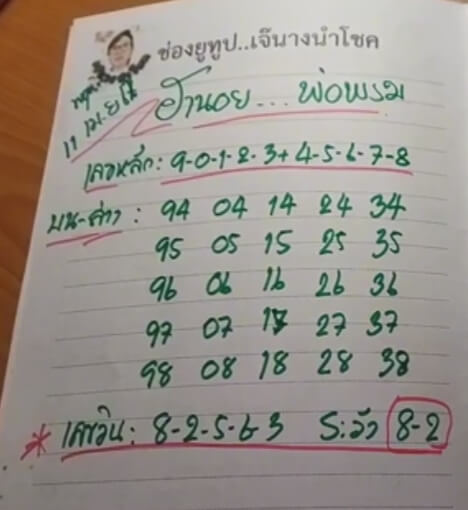 ช่องยูทูป..เจ๊นางนำโชค
ฮานอย... พ่อพรม
11 เม.ย
เลขหลัก: 9-0-1-2-3+4-5-6-7-8
บน-ล่าง: 94 04 14 24 34
95 05 15 25 35
96 06 16 26 36
97 07 17 27 37
98 08 18 28 38
* เลขวิน: 8-2-5-6-3 ระวัง 8-2